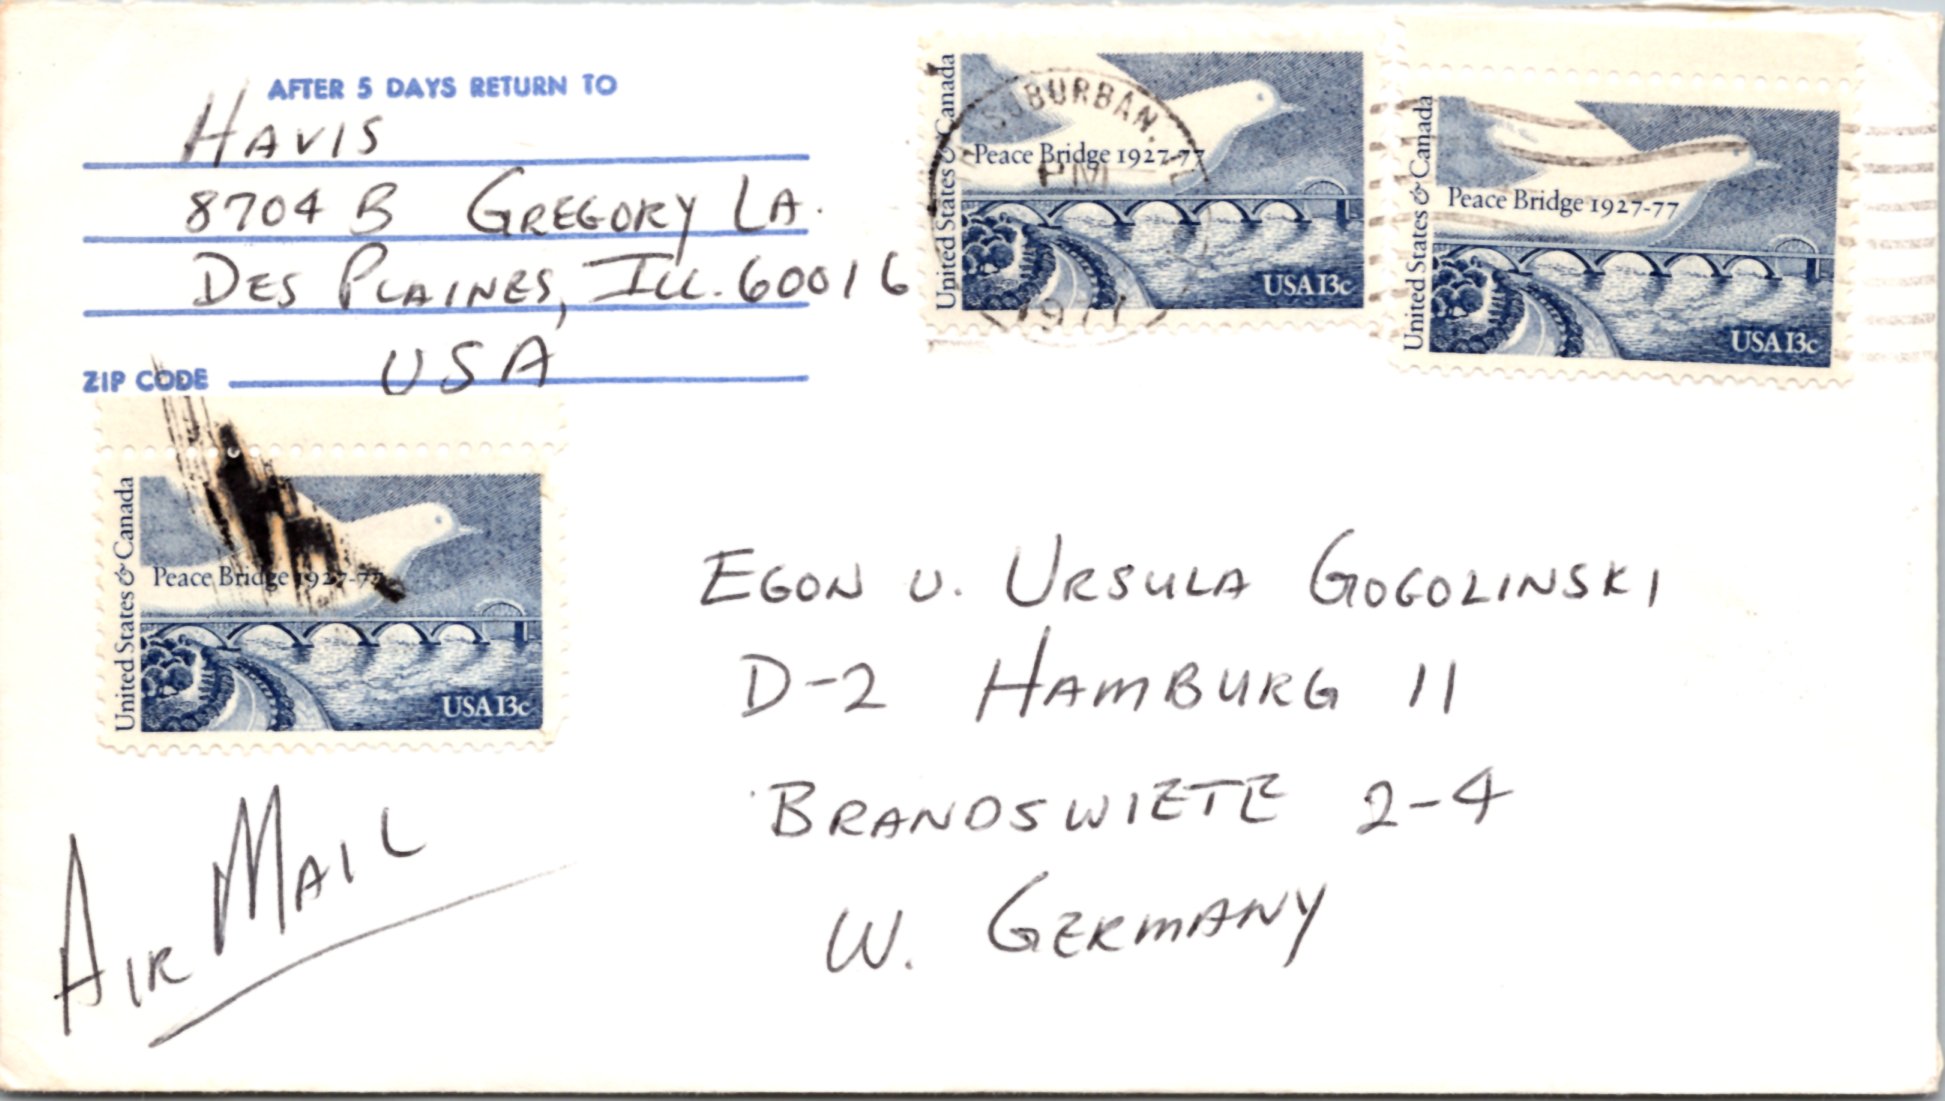 AFTER 5 DAYS RETURN TO
HAVIS
8704 B GREGORY LA.
DES PLAINES, ILL. 60016
USA
ZIP CODE
United States & Canada
Peace Bridge 1927-77
USA 13c
SUBURBAN, IL
PM
United States & Canada
Peace Bridge 1927-77
USA 13c
United States & Canada
Peace Bridge 1927-77
USA 13c
EGON U. URSULA GOGOLINSKI
D-2 HAMBURG 11
BRANDSWIETE 2-4
W. GERMANY
AIR MAIL